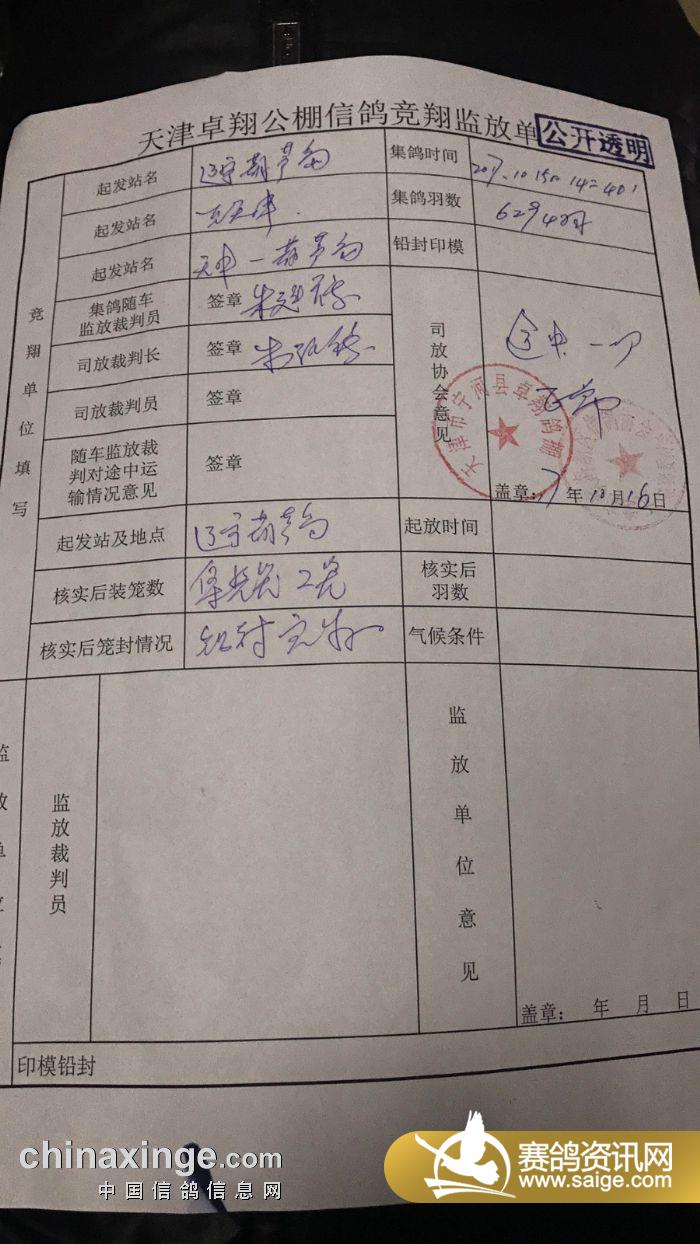 天津卓翔公棚信鸽竞翔监放单
公开透明
竞翔单位填写
起发站名 辽宁葫芦岛 集鸽时间
起发站名 集鸽羽数 6294羽
起发站名 天津一葫芦岛 铅封印模
集鸽随车
监放裁判员 签章
司放裁判长 签章
司放裁判员 签章
随车监放裁
判对途中运
输情况意见 签章
司放协会意见
途中一切
正常
天津市宁河县卓翔鸽棚
盖章: 17年10月16日
起发站及地点 辽宁葫芦岛 起放时间
核实后装笼数 核实后
羽数
核实后笼封情况 铅封完好 气候条件
监放裁判员
监放单位意见
盖章: 年 月 日
印模铅封
chinaxinge.com
中国信鸽信息网
赛鸽资讯网
www.saige.com